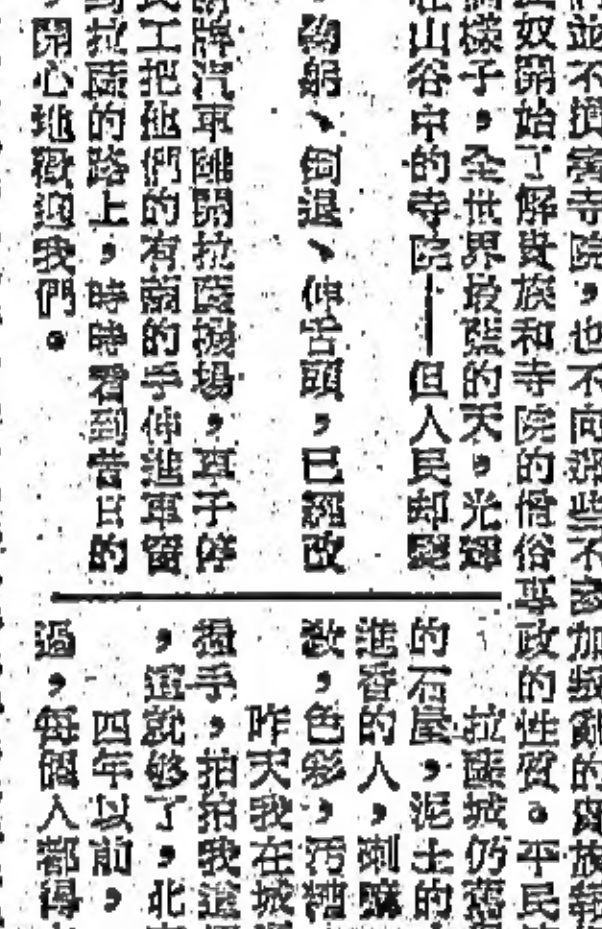 們並不損害寺院，也不向那些不參加叛亂的貴族
奴開始了解貴族和寺院的僧俗專政的性質。平民
樣子，全世界最藍的天，光輝
在山谷中的寺院——但人民却變
鞠躬、倒退、伸舌頭，已經改
牌汽車離開拉薩機場，車子停
工把他們的有繭的手伸進車窗
到拉薩的路上，時時看到昔日的
，開心地歡迎我們。
拉薩城仍舊
的石屋，泥土的
進香的人，喇嘛
散，色彩，污糟
昨天我在城
握手，拍拍我這
，這就够了，北
四年以前，
過，每個人都得